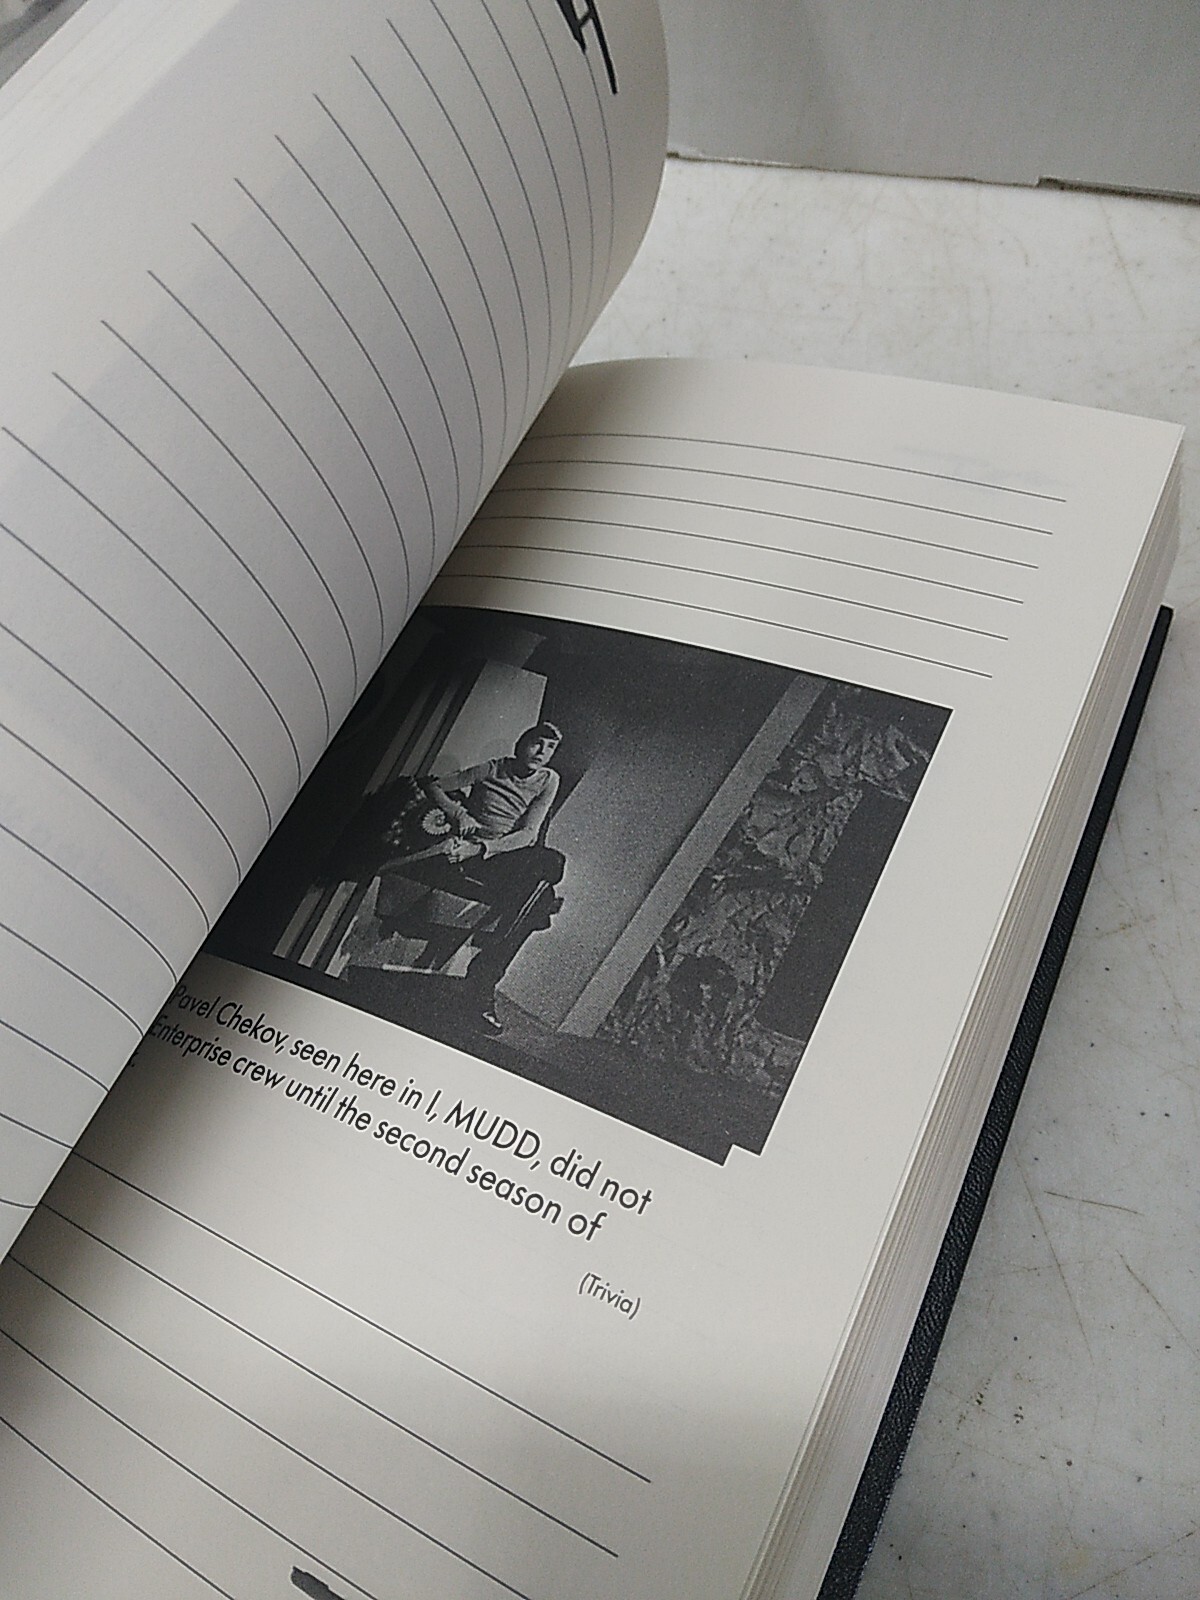 Pavel Chekov, seen here in I, MUDD, did not
Enterprise crew until the second season of
(Trivia)